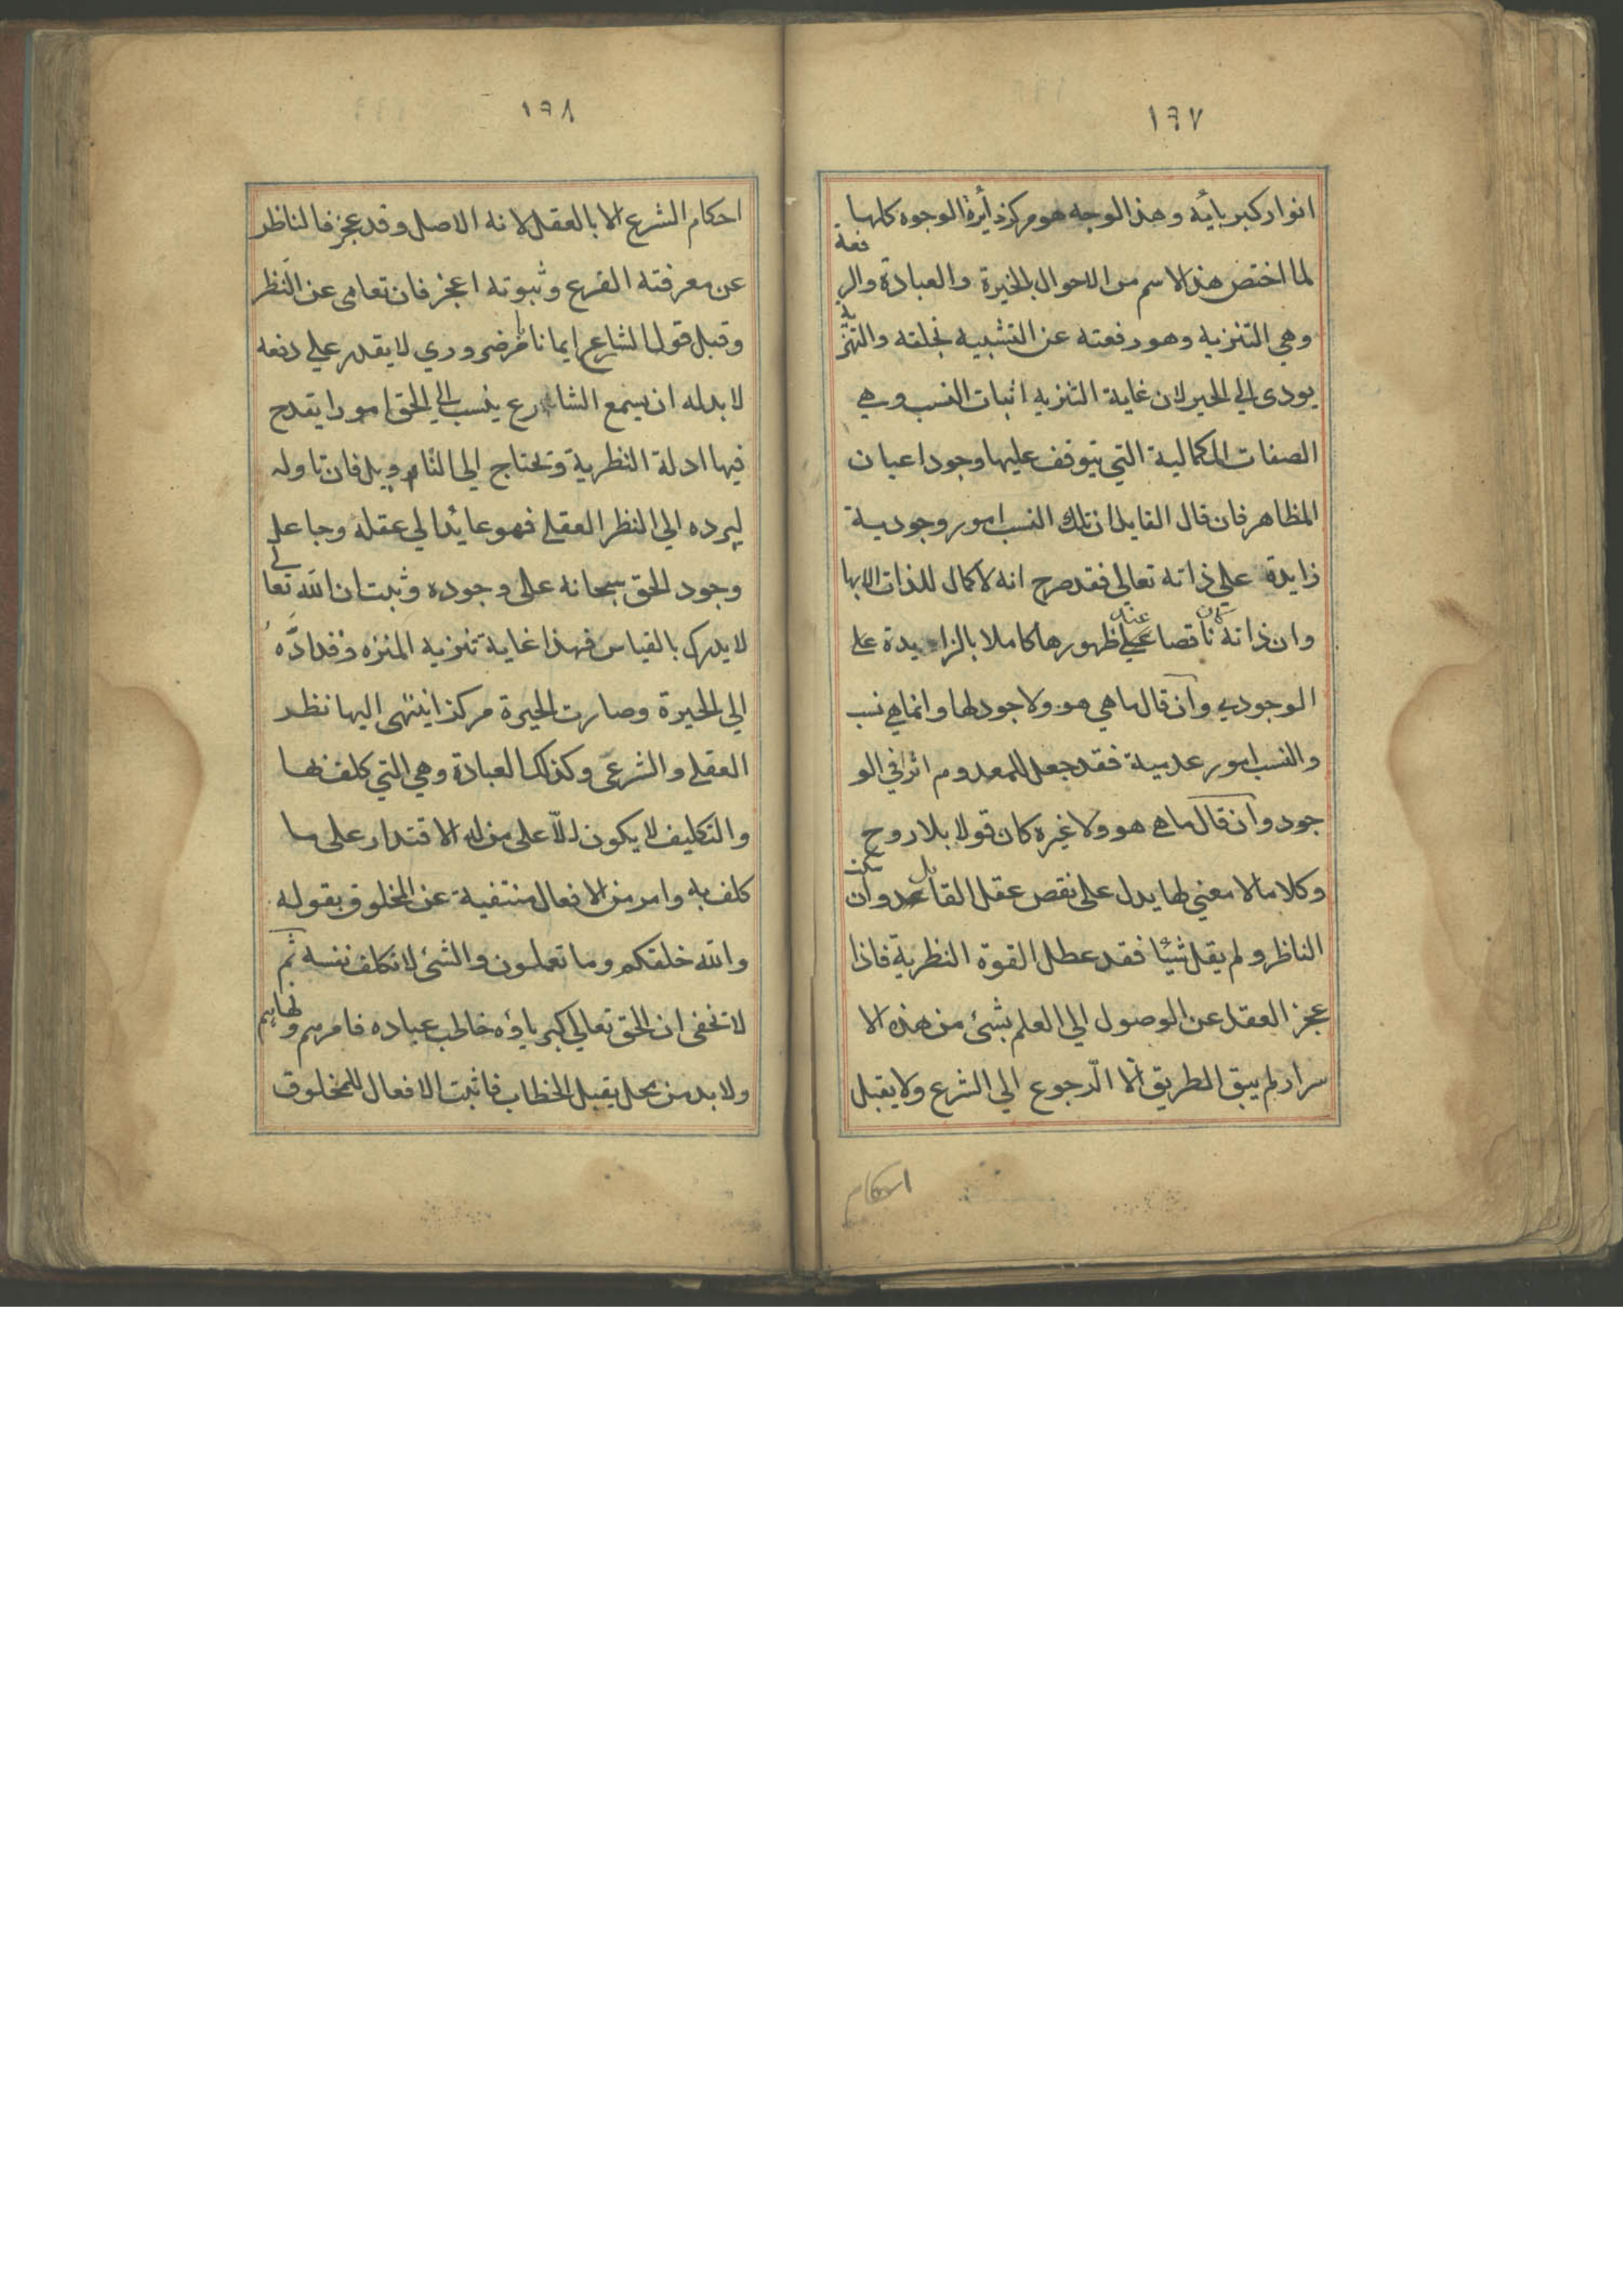 ١٦٧
انوار كبريائه وهذا الوجه هو مركز دائرة الوجوه كلها
لما اختص هذا الاسم من الاحوال بالحيرة والعبادة والرفعة
وهي التنزيه وهو رفعته عن التشبيه بخلقه والتنزيه
يودى الي الحير لان غاية التنزيه اثبات النسب وهي
الصفات الكمالية التي يتوقف عليها وجود اعيان
المظاهر فان قال القايل ان تلك النسب امور وجودية
زايدة علي ذاته تعالي فقد صرح انه لا كمال للذات الا بها
وان ذاته ناقصا ظهورها كاملا بالزايدة علي
الوجودي وان قال ما هي هو ولا وجود لها وانما هي نسب
والنسب امور عدمية فقد جعل للمعدوم اثرا في الو
جود وان قال ما هي هو ولا غيره كان قولا بلا روح
وكلاما لا معني لها يدل على نقص عقل القائل وان سكت
الناظر ولم يقل شيئا فقد عطل القوة النظرية فاذا
عجز العقل عن الوصول الي العلم بشئ من هذه الا
سرار لم يبق الطريق الا الرجوع الي الشرع ولا يقبل
احكام
١٦٨
احكام الشرع الا بالعقل لانه الاصل وقد عجز فالناظر
عن معرفته الفرع وثبوته اعجز فان تعامى عن النظر
وقبل قول الشارع ايمانا ضروري لا يقدر علي دفعه
لا بد له ان يسمع الشارع ينسب الي الحق امورا يقدح
فيها ادلة النظرية وتحتاج الي التاويل فان تاوله
ليرده الي النظر العقلي فهو عائد الي عقله وجاعل
وجود الحق سبحانه على وجوده وثبت ان الله تعالي
لا يدرك بالقياس فهذا غاية تنزيه المنزه فقد ادّه
الي الحيرة وصارت الحيرة مركزا ينتهى اليها نظر
العقلي والشرعي وكذلك العبادة وهي التي كلف بها
والتكليف لا يكون الّا على من له الاقتدار على ما
كلف به وامر من الافعال منتفية عن المخلوق بقوله
والله خلقكم وما تعملون والشئ لا تكلف نفسه ثم
لا تخفى ان الحق تعالي كبرياؤه خاطب عباده فامرهم ونهاهم
ولا بد من محل يقبل الخطاب فاثبت الافعال للمخلوق